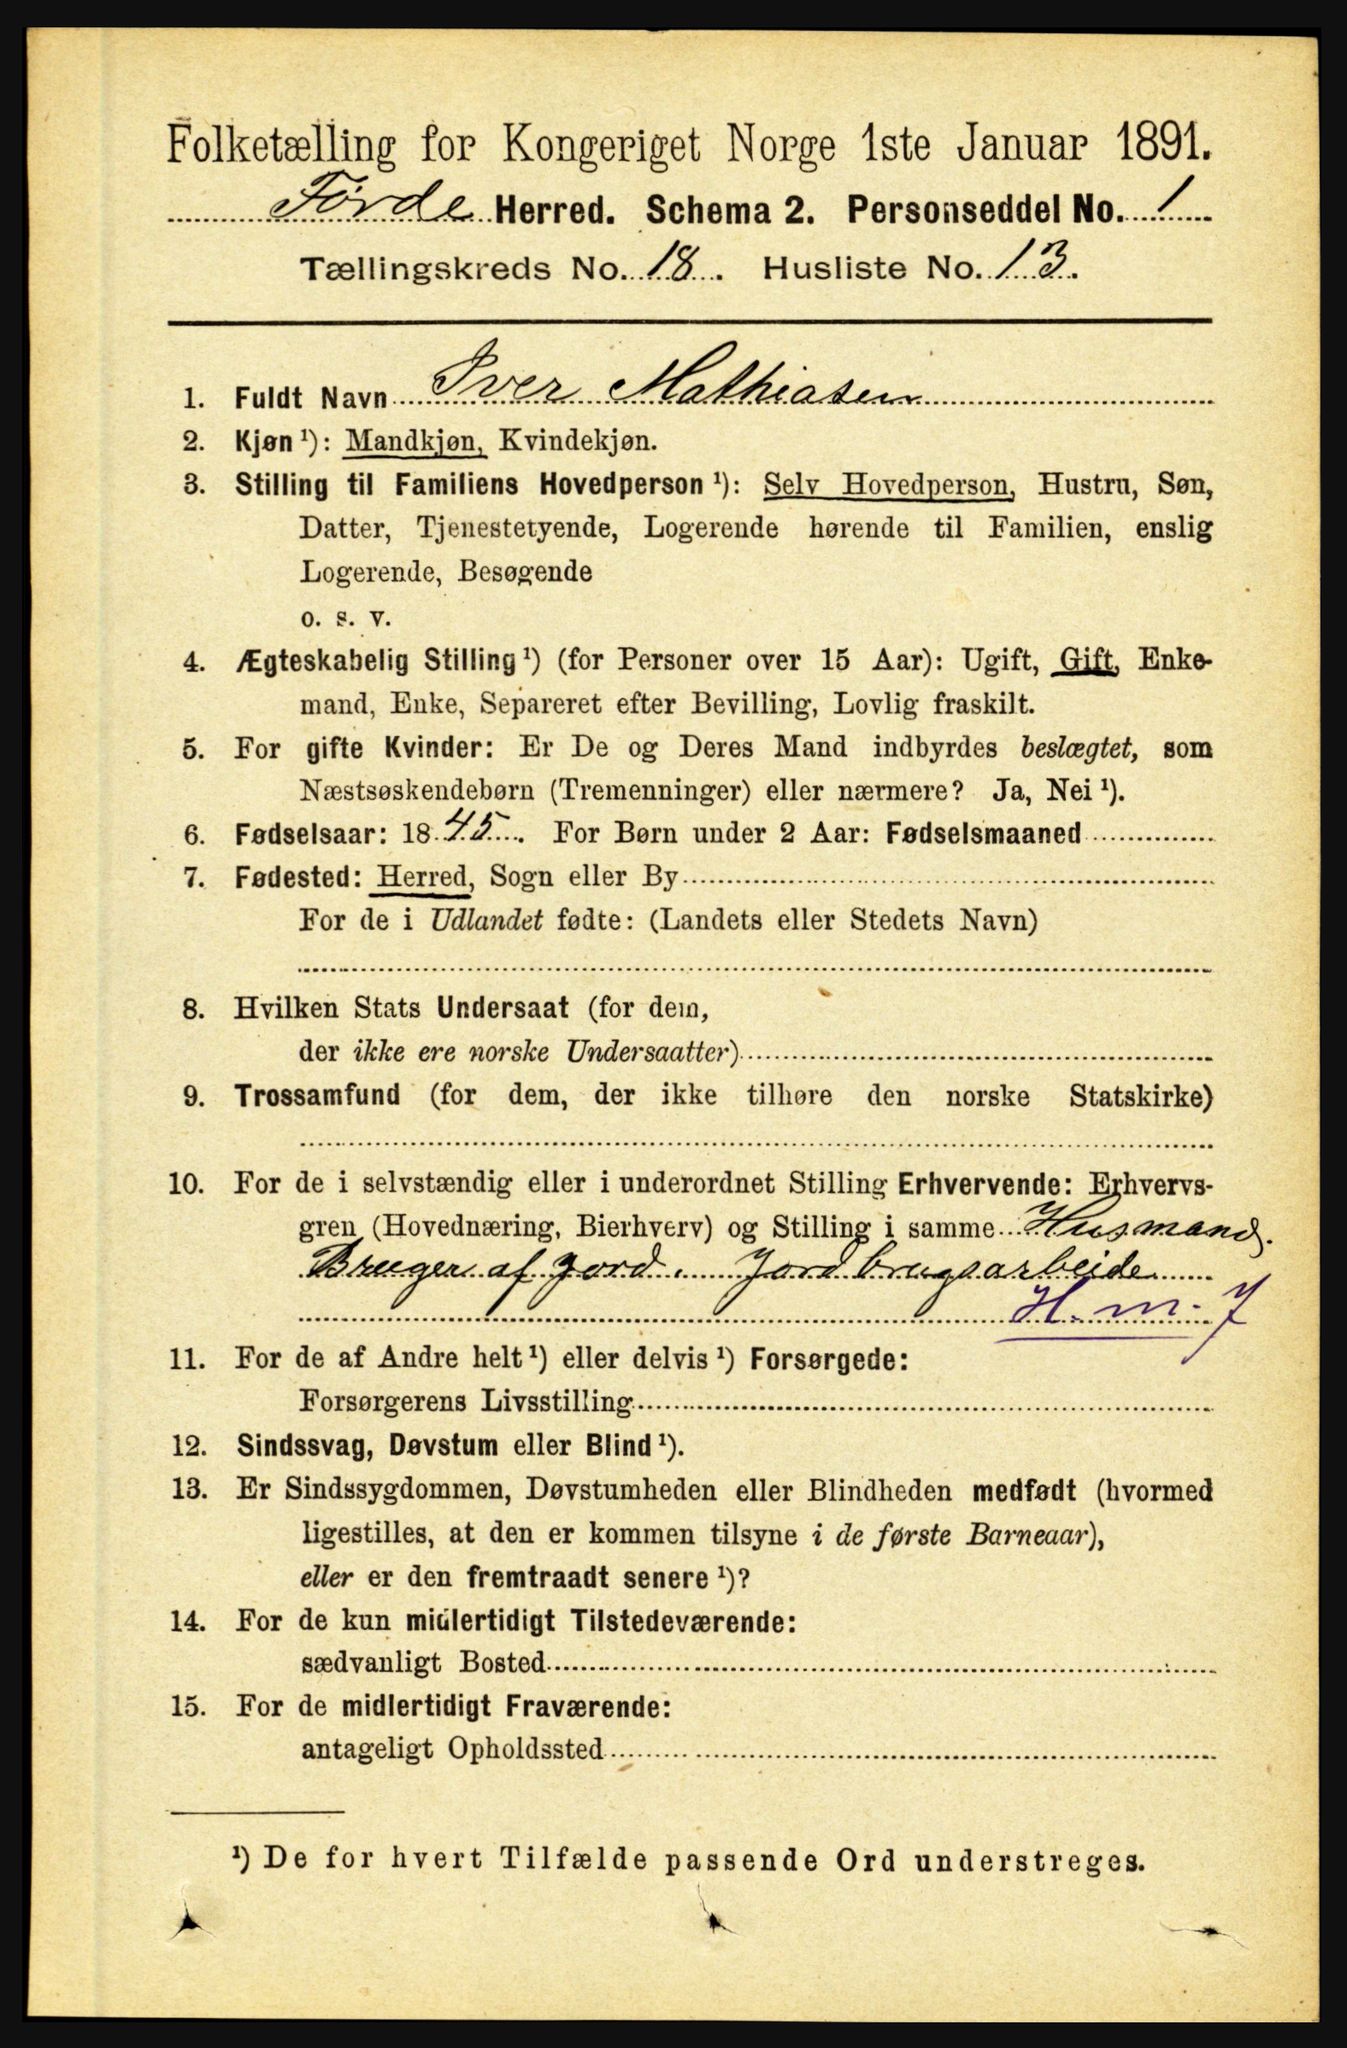 Folketælling for Kongeriget Norge 1ste Januar 1891.
Førde Herred. Schema 2. Personseddel No. 1
Tællingskreds No. 18. Husliste No. 13.
1. Fuldt Navn Iver Mathiasen
2. Kjøn ¹): Mandkjøn, Kvindekjøn.
3. Stilling til Familiens Hovedperson ¹): Selv Hovedperson, Hustru, Søn,
Datter, Tjenestetyende, Logerende hørende til Familien, enslig
Logerende, Besøgende
o. s. v.
4. Ægteskabelig Stilling ¹) (for Personer over 15 Aar): Ugift, Gift, Enke-
mand, Enke, Separeret efter Bevilling, Lovlig fraskilt.
5. For gifte Kvinder: Er De og Deres Mand indbyrdes beslægtet, som
Næstsøskendebørn (Tremenninger) eller nærmere? Ja, Nei ¹).
6. Fødselsaar: 1845. For Børn under 2 Aar: Fødselsmaaned
7. Fødested: Herred, Sogn eller By
For de i Udlandet fødte: (Landets eller Stedets Navn)
8. Hvilken Stats Undersaat (for dem,
der ikke ere norske Undersaatter)
9. Trossamfund (for dem, der ikke tilhøre den norske Statskirke)
10. For de i selvstændig eller i underordnet Stilling Erhvervende: Erhvervs-
gren (Hovednæring, Bierhverv) og Stilling i samme Husmand.
Bruger af Jord. Jordbrugsarbeide
H. m. J
11. For de af Andre helt ¹) eller delvis ¹) Forsørgede:
Forsørgerens Livsstilling
12. Sindssvag, Døvstum eller Blind ¹).
13. Er Sindssygdommen, Døvstumheden eller Blindheden medfødt (hvormed
ligestilles, at den er kommen tilsyne i de første Barneaar),
eller er den fremtraadt senere ¹)?
14. For de kun midlertidigt Tilstedeværende:
sædvanligt Bosted
15. For de midlertidigt Fraværende:
antageligt Opholdssted
¹) De for hvert Tilfælde passende Ord understreges.